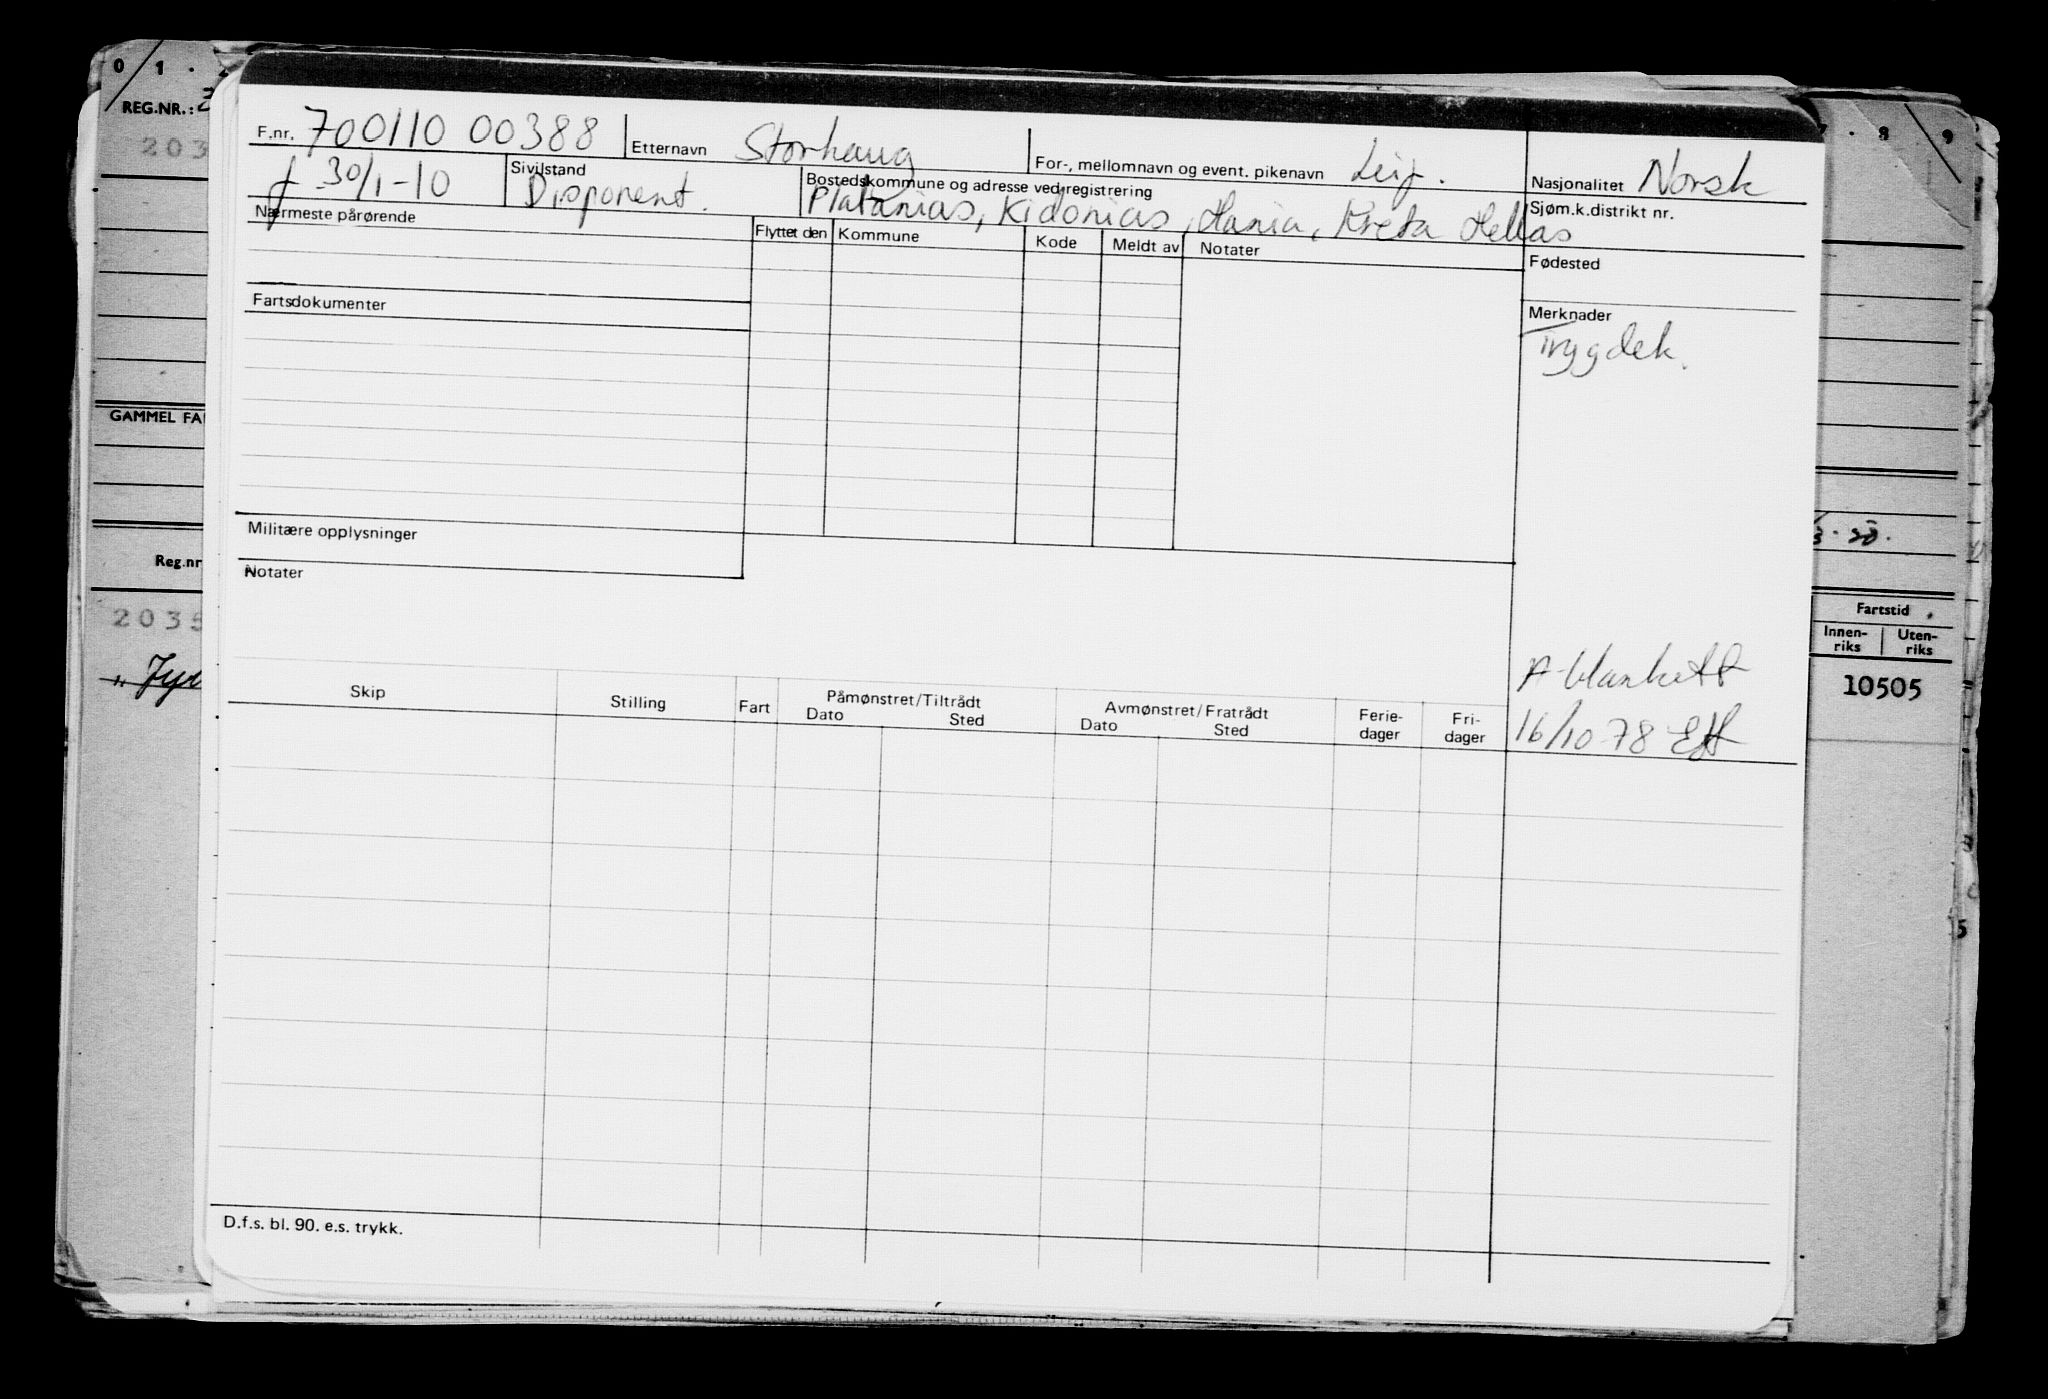 0 1 . 2
REG.NR.:
203
F.nr. 700110 00388 Etternavn Storhaug For-, mellomnavn og event. pikenavn Leif. Nasjonalitet Norsk
f 30/1-10 Sivilstand Disponent. Bostedskommune og adresse ved registrering Platanias, Kidonias, Hania, Kreta Hellas Sjøm.k.distrikt nr.
7 . 8 9
Nærmeste pårørende Flyttet den Kommune Kode Meldt av Notater Fødested
Fartsdokumenter Merknader
Trygdek.
GAMMEL FA
Militære opplysninger
Reg.nr
Notater
2035
Fartstid
Innen-riks Uten-riks
10505
A-blankett
16/10 78 EH
Skip Stilling Fart Påmønstret/Tiltrådt Avmønstret/Fratrådt Ferie-dager Fri-dager
Dato Sted Dato Sted
D.f.s. bl. 90. e.s. trykk.